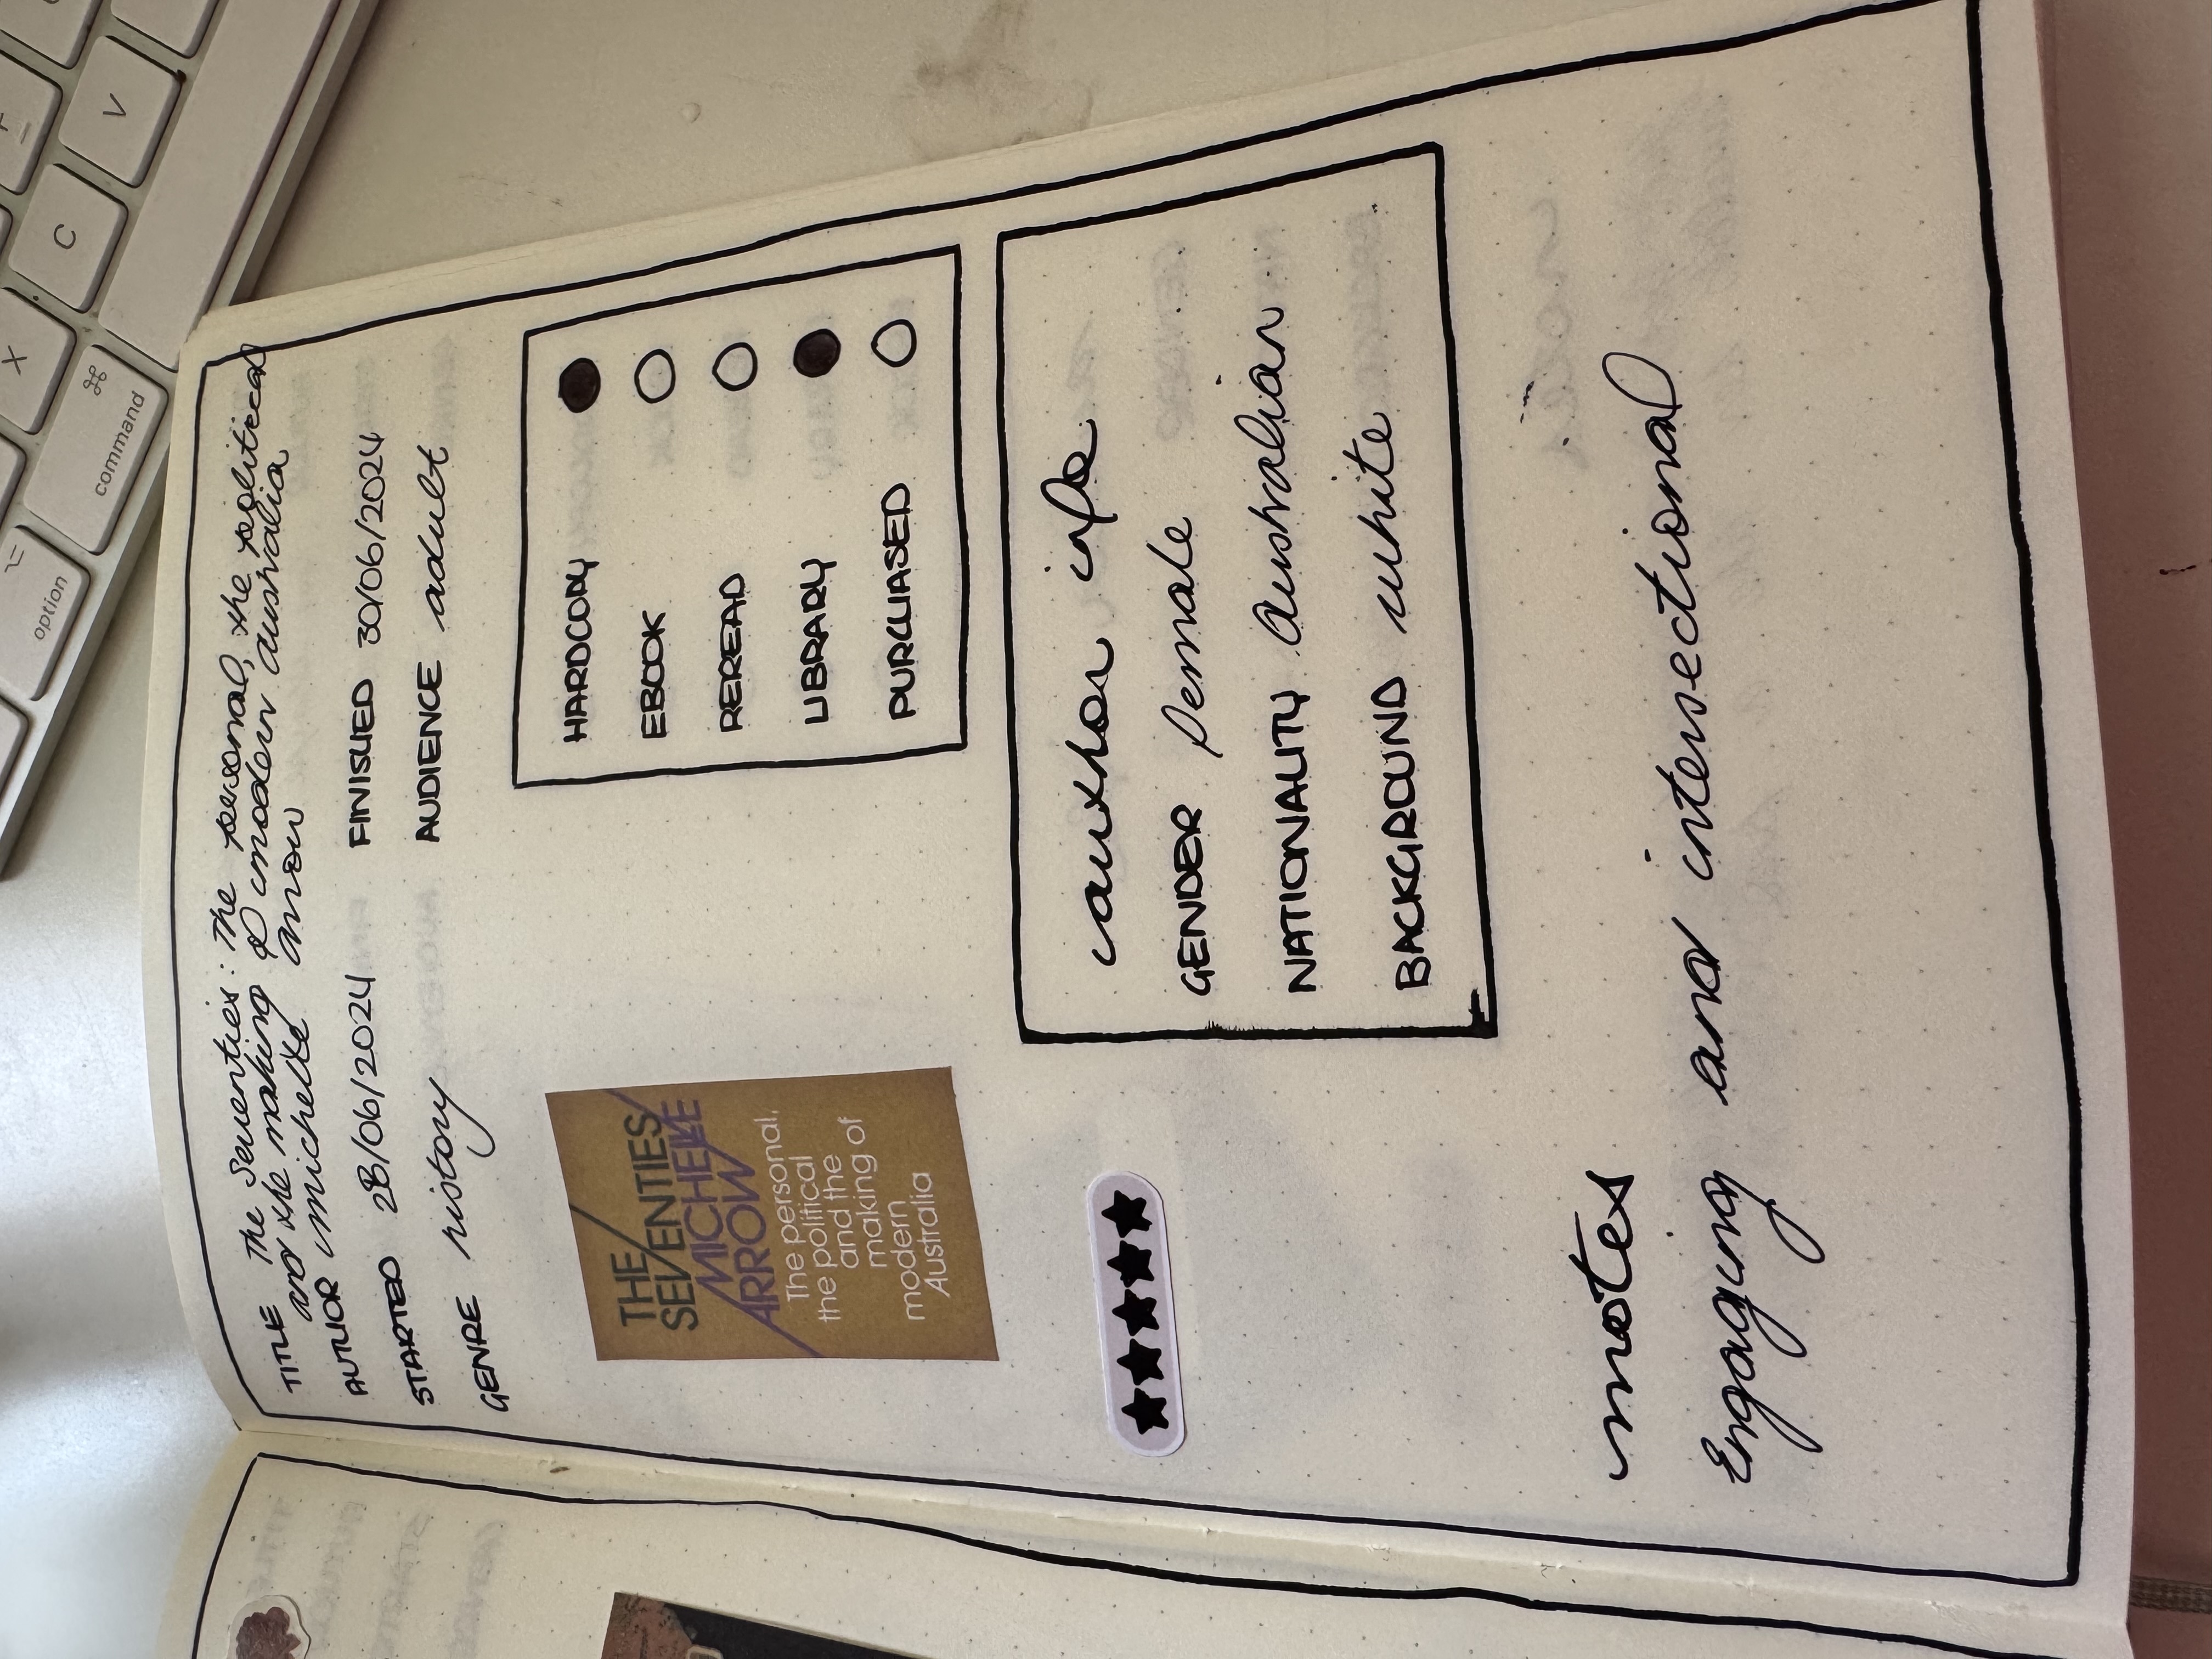 TITLE The Seventies: The personal, the political
and the making of modern australia
AUTHOR michelle arrow
STARTED 28/06/2024 FINISHED 30/06/2024
GENRE history AUDIENCE adult
HARDCOPY
EBOOK
REREAD
LIBRARY
PURCHASED
THE
SEVENTIES
MICHELLE
ARROW
The personal,
the political
and the
making of
modern
Australia
author info
GENDER female
NATIONALITY Australian
BACKGROUND white
notes
Engaging and intersectional
V
C
X
⌘
command
⌥
option